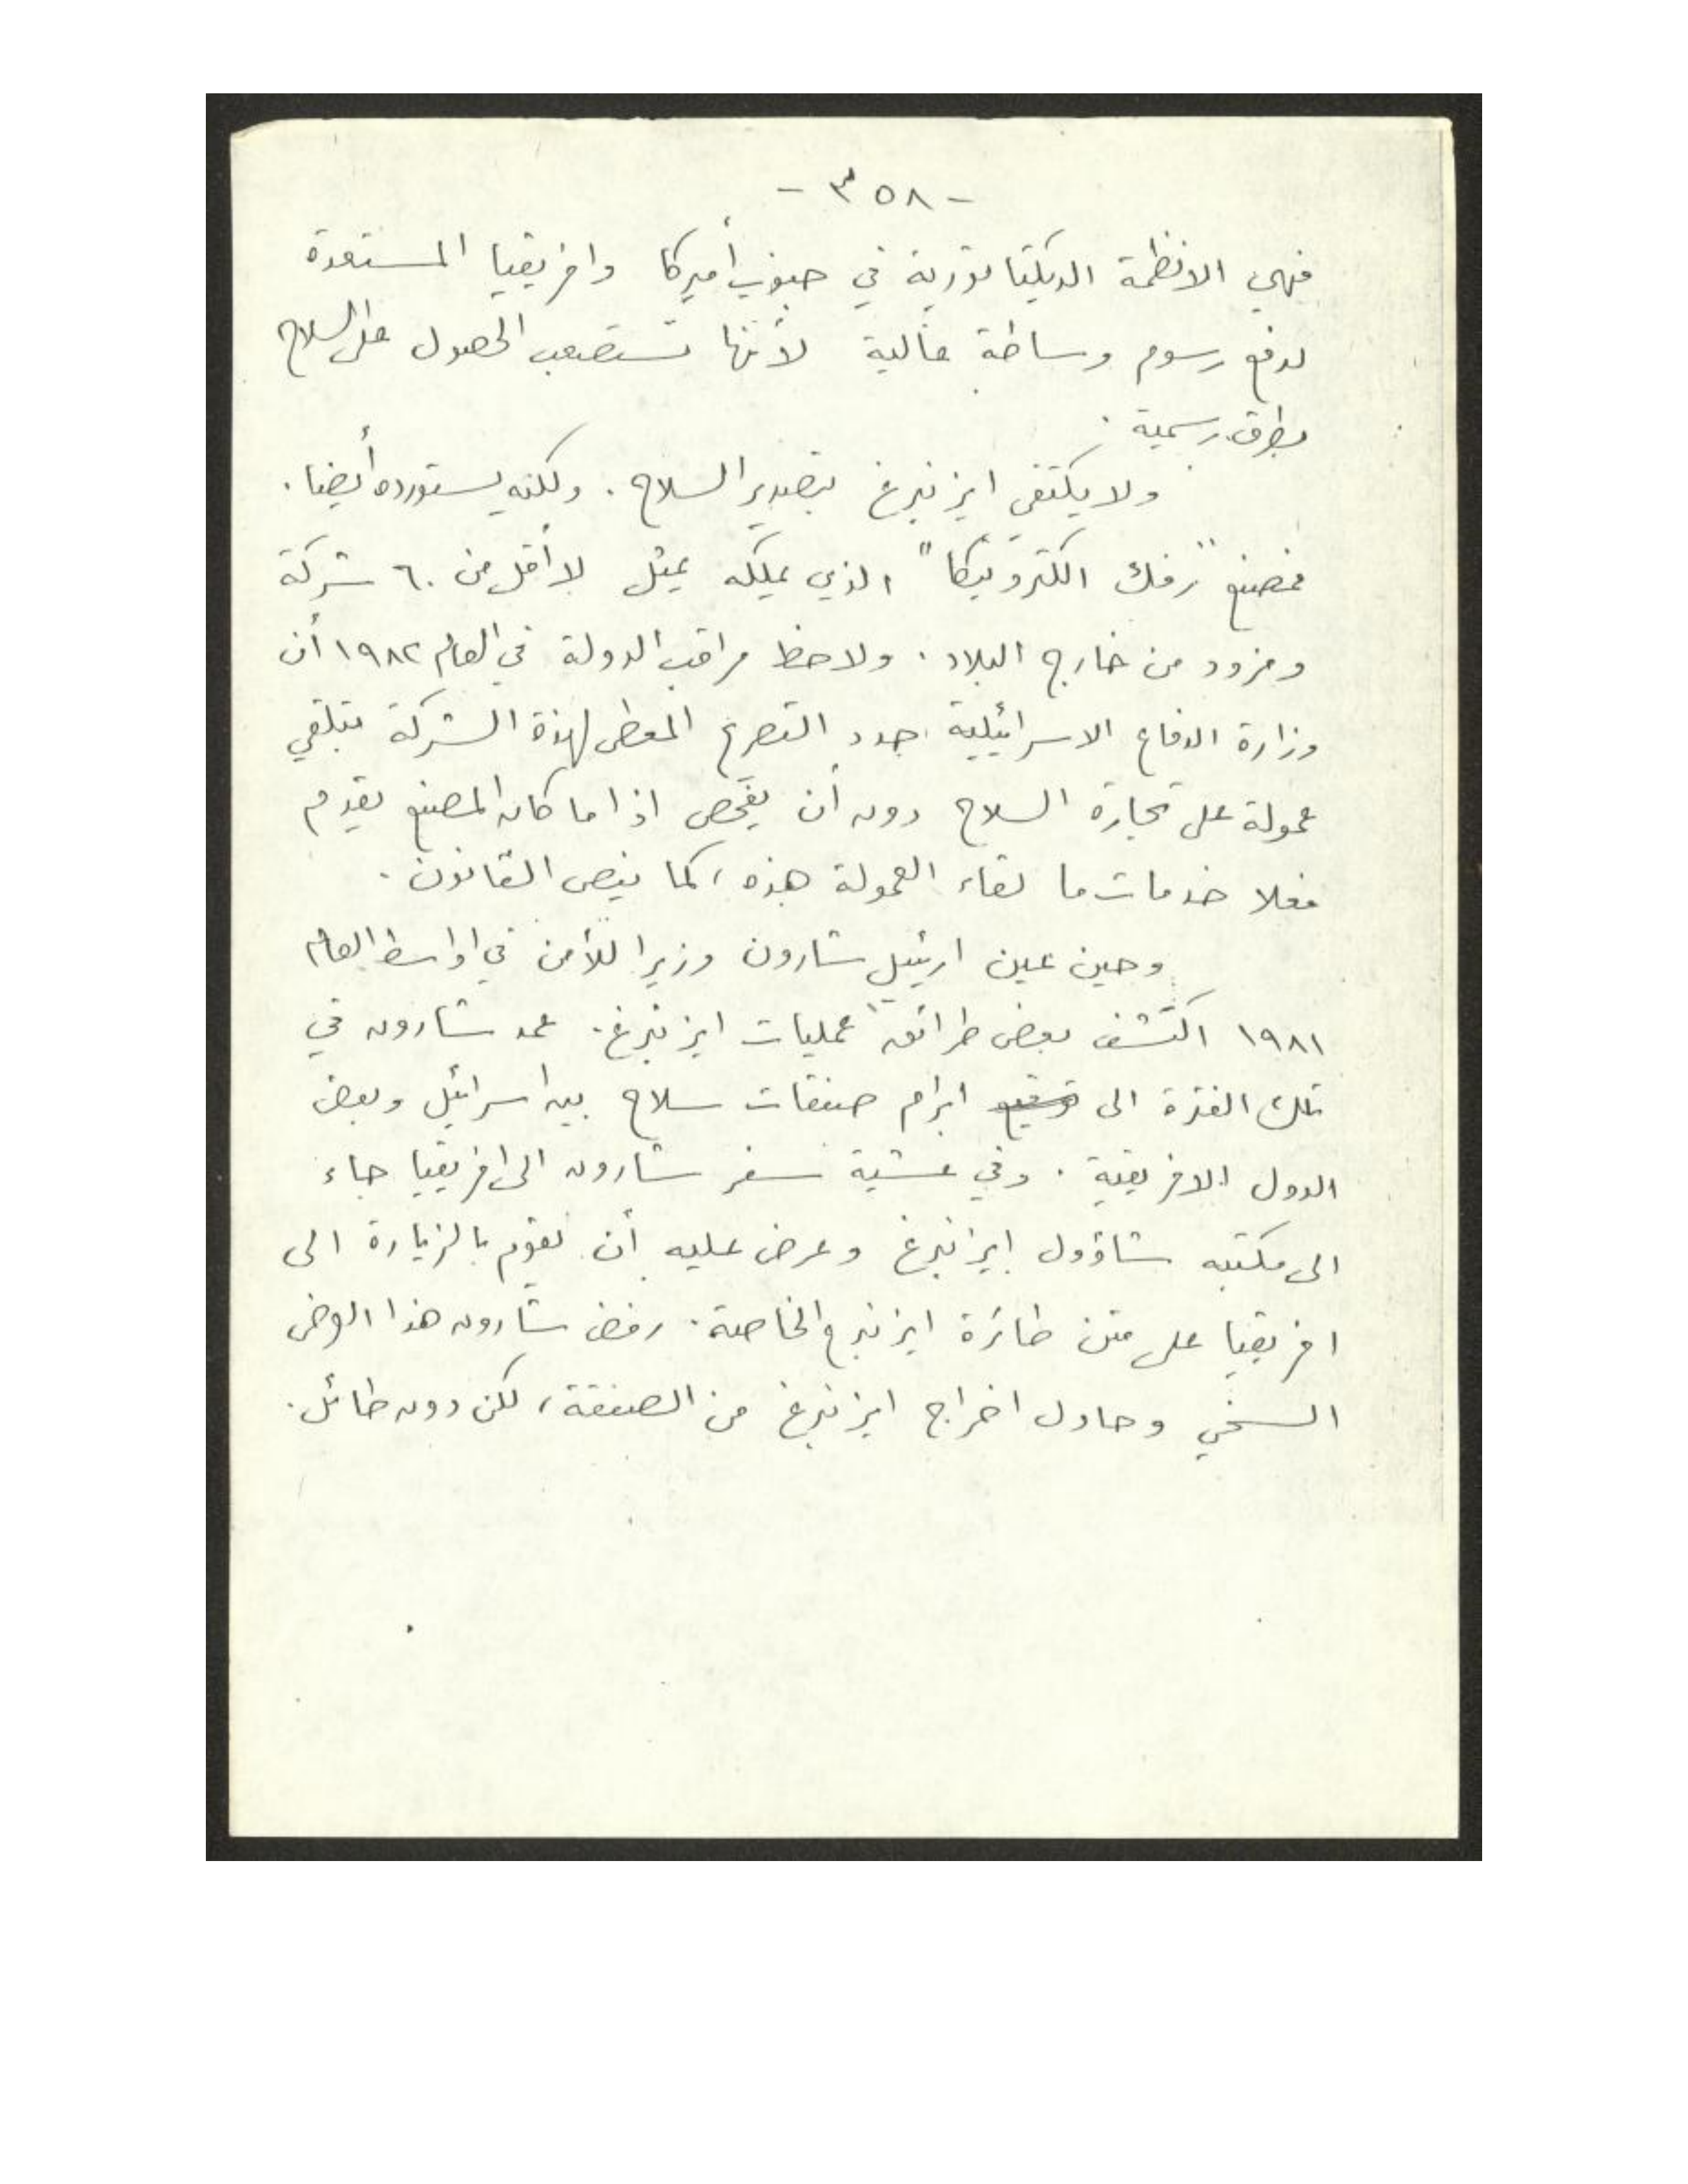 - ٣٥٨ -
فهي الانظمة الديكتاتورية في جنوب أميركا وافريقيا المستعدة
لدفع رسوم وساطة عالية لأنها تستصعب الحصول على السلاح
بطرق رسمية .
ولا يكتفي ايزنبرغ بتصدير السلاح . ولكنه يستورده أيضا .
فمصنع " رفك الكترونيكا " الذي يملكه يمثل لا أقل من ٦٠ شركة
ومزود من خارج البلاد . ولاحظ مراقب الدولة في العام ١٩٨٢ أن
وزارة الدفاع الاسرائيلية جدد التصريح المعطى لهذة الشركة بتلقي
عمولة على تجارة السلاح دون أن يفحص اذا ما كان المصنع يقدم
فعلا خدمات ما لقاء العمولة هذه ، كما ينص القانون .
وحين عين ارئيل شارون وزيرا للأمن في اواسط العام
١٩٨١ اكتشف بعض طرائق عمليات ايزنبرغ . عمد شارون في
تلك الفترة الى توقيع ابرام صفقات سلاح بين اسرائيل وبعض
الدول الافريقية . وفي عشية سفر شارون الى افريقيا جاء
الى مكتبه شاؤول ايزنبرغ وعرض عليه أن يقوم بالزيارة الى
افريقيا على متن طائرة ايزنبرغ الخاصة . رفض شارون هذا العرض
السخي وحاول اخراج ايزنبرغ من الصفقة ، لكن دون طائل .